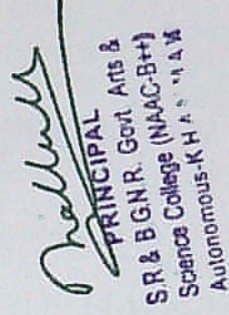 PRINCIPAL
S.R & B.G.N.R. Govt Arts &
Science College (NAAC-B++)
Autonomous-